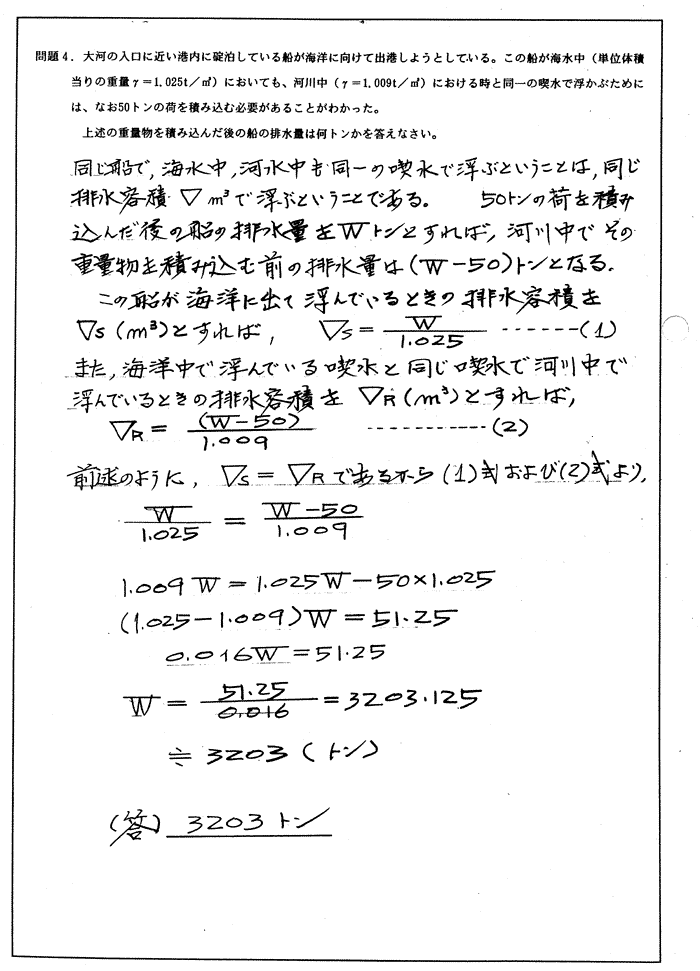 問題4．大河の入口に近い港内に碇泊している船が海洋に向けて出港しようとしている。この船が海水中（単位体積
当りの重量γ＝1.025t／㎥）においても、河川中（γ＝1.009t／㎥）における時と同一の喫水で浮かぶために
は、なお50トンの荷を積み込む必要があることがわかった。
上述の重量物を積み込んだ後の船の排水量は何トンかを答えなさい。
同じ船で，海水中，河水中も同一の喫水で浮ぶということは，同じ
排水容積 ▽ m³で浮ぶということである。 50トンの荷を積み
込んだ後の船の排水量をWトンとすれば，河川中でその
重量物を積み込む前の排水量は(W-50)トンとなる.
この船が海洋に出て浮んでいるときの排水容積を
▽s (m³)とすれば， ▽s = W/1.025 ------(1)
また，海洋中で浮んでいる喫水と同じ喫水で河川中で
浮んでいるときの排水容積を ▽R (m³)とすれば，
▽R = (W-50)/1.009 -----------(2)
前述のように，▽s = ▽Rであるから (1)式および(2)式より，
W/1.025 = W-50/1.009
1.009 W = 1.025W - 50×1.025
(1.025-1.009)W = 51.25
0.016W = 51.25
W = 51.25/0.016 = 3203.125
≒ 3203 (トン)
(答) 3203 トン